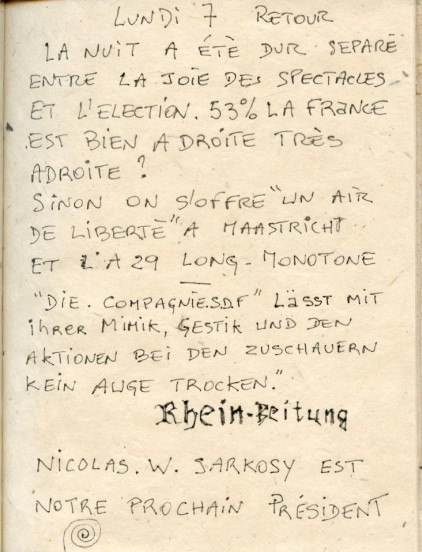 LUNDI 7 RETOUR
LA NUIT A ÉTÈ DUR SEPARÉ
ENTRE LA JOIE DES SPECTACLES
ET L'ELECTION. 53% LA FRANCE
EST BIEN A DROITE TRÈS
ADROITE ?
SINON ON S'OFFRE "UN AIR
DE LIBERTÈ" A MAASTRICHT
ET L'A 29 LONG-MONOTONE
"DIE. COMPAGNIE.SDF" LÄSST MIT
IHRER MIMIK, GESTIK UND DEN
AKTIONEN BEI DEN ZUSCHAUERN
KEIN AUGE TROCKEN."
Rhein-Zeitung
NICOLAS. W. SARKOSY EST
NOTRE PROCHAIN PRÉSIDENT